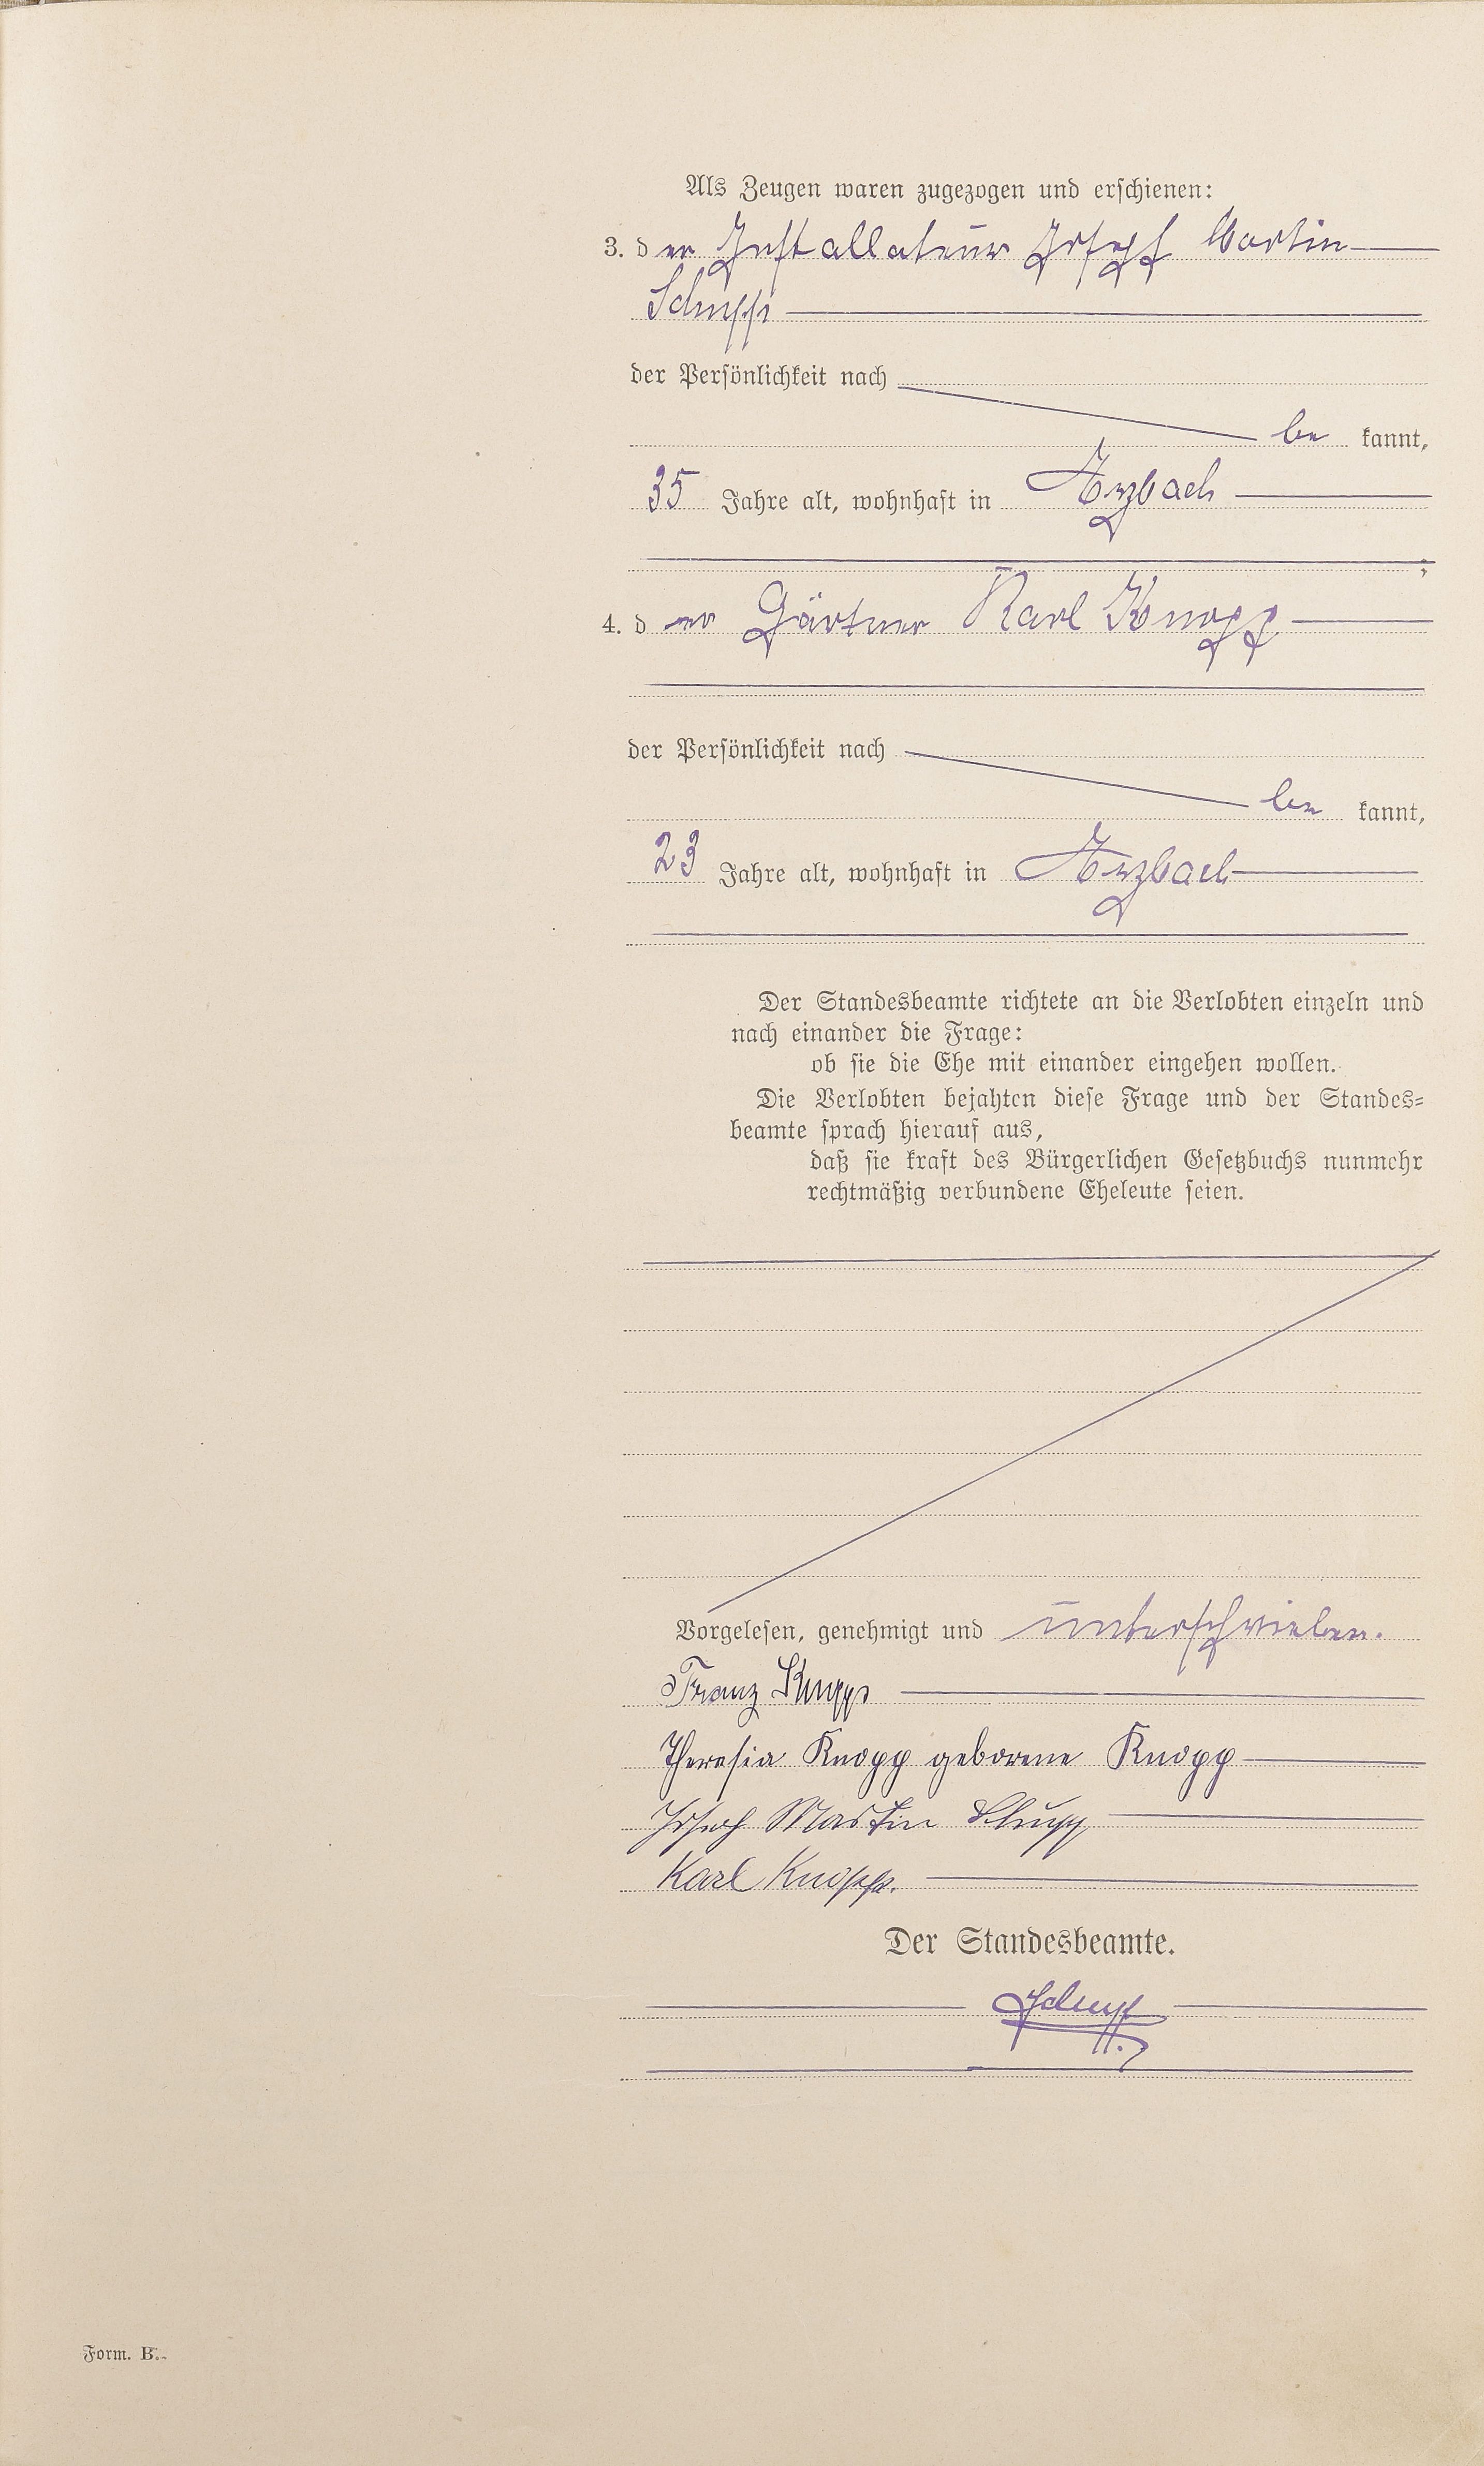 Als Zeugen waren zugezogen und erschienen:
3. der Installateur Joseph Martin
Schupp
der Persönlichkeit nach
be kannt,
35 Jahre alt, wohnhaft in Arzbach
;
4. der Gärtner Karl Knopp
der Persönlichkeit nach
be kannt,
23 Jahre alt, wohnhaft in Arzbach
Der Standesbeamte richtete an die Verlobten einzeln und
nach einander die Frage:
ob sie die Ehe mit einander eingehen wollen.
Die Verlobten bejahten diese Frage und der Standes=
beamte sprach hierauf aus,
daß sie kraft des Bürgerlichen Gesetzbuchs nunmehr
rechtmäßig verbundene Eheleute seien.
Vorgelesen, genehmigt und unterschrieben.
Franz Knopp
Theresia Knopp geborene Knopp
Joseph Martin Schupp
Karl Knopp.
Der Standesbeamte.
Schupp
Form. B.